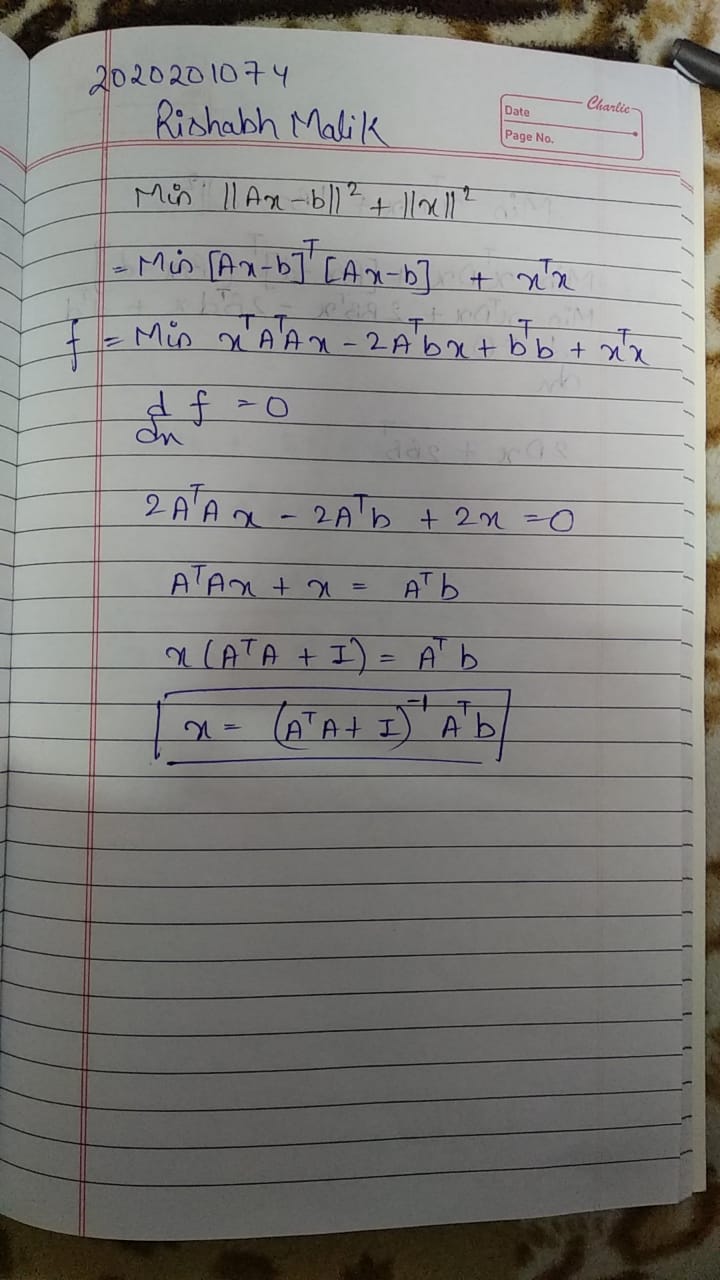 2020201074
Rishabh Malik
Charlie
Date
Page No.
Min ||Ax-b||² + ||x||²
= Min [Ax-b]ᵀ [Ax-b] + xᵀx
f = Min xᵀAᵀAx - 2Aᵀbx + bᵀb + xᵀx
d/dx f = 0
2AᵀAx - 2Aᵀb + 2x = 0
AᵀAx + x = Aᵀb
x(AᵀA + I) = Aᵀb
x = (AᵀA + I)⁻¹ Aᵀb